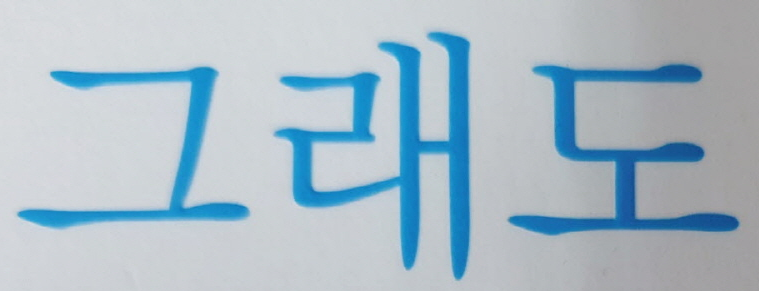 그래도